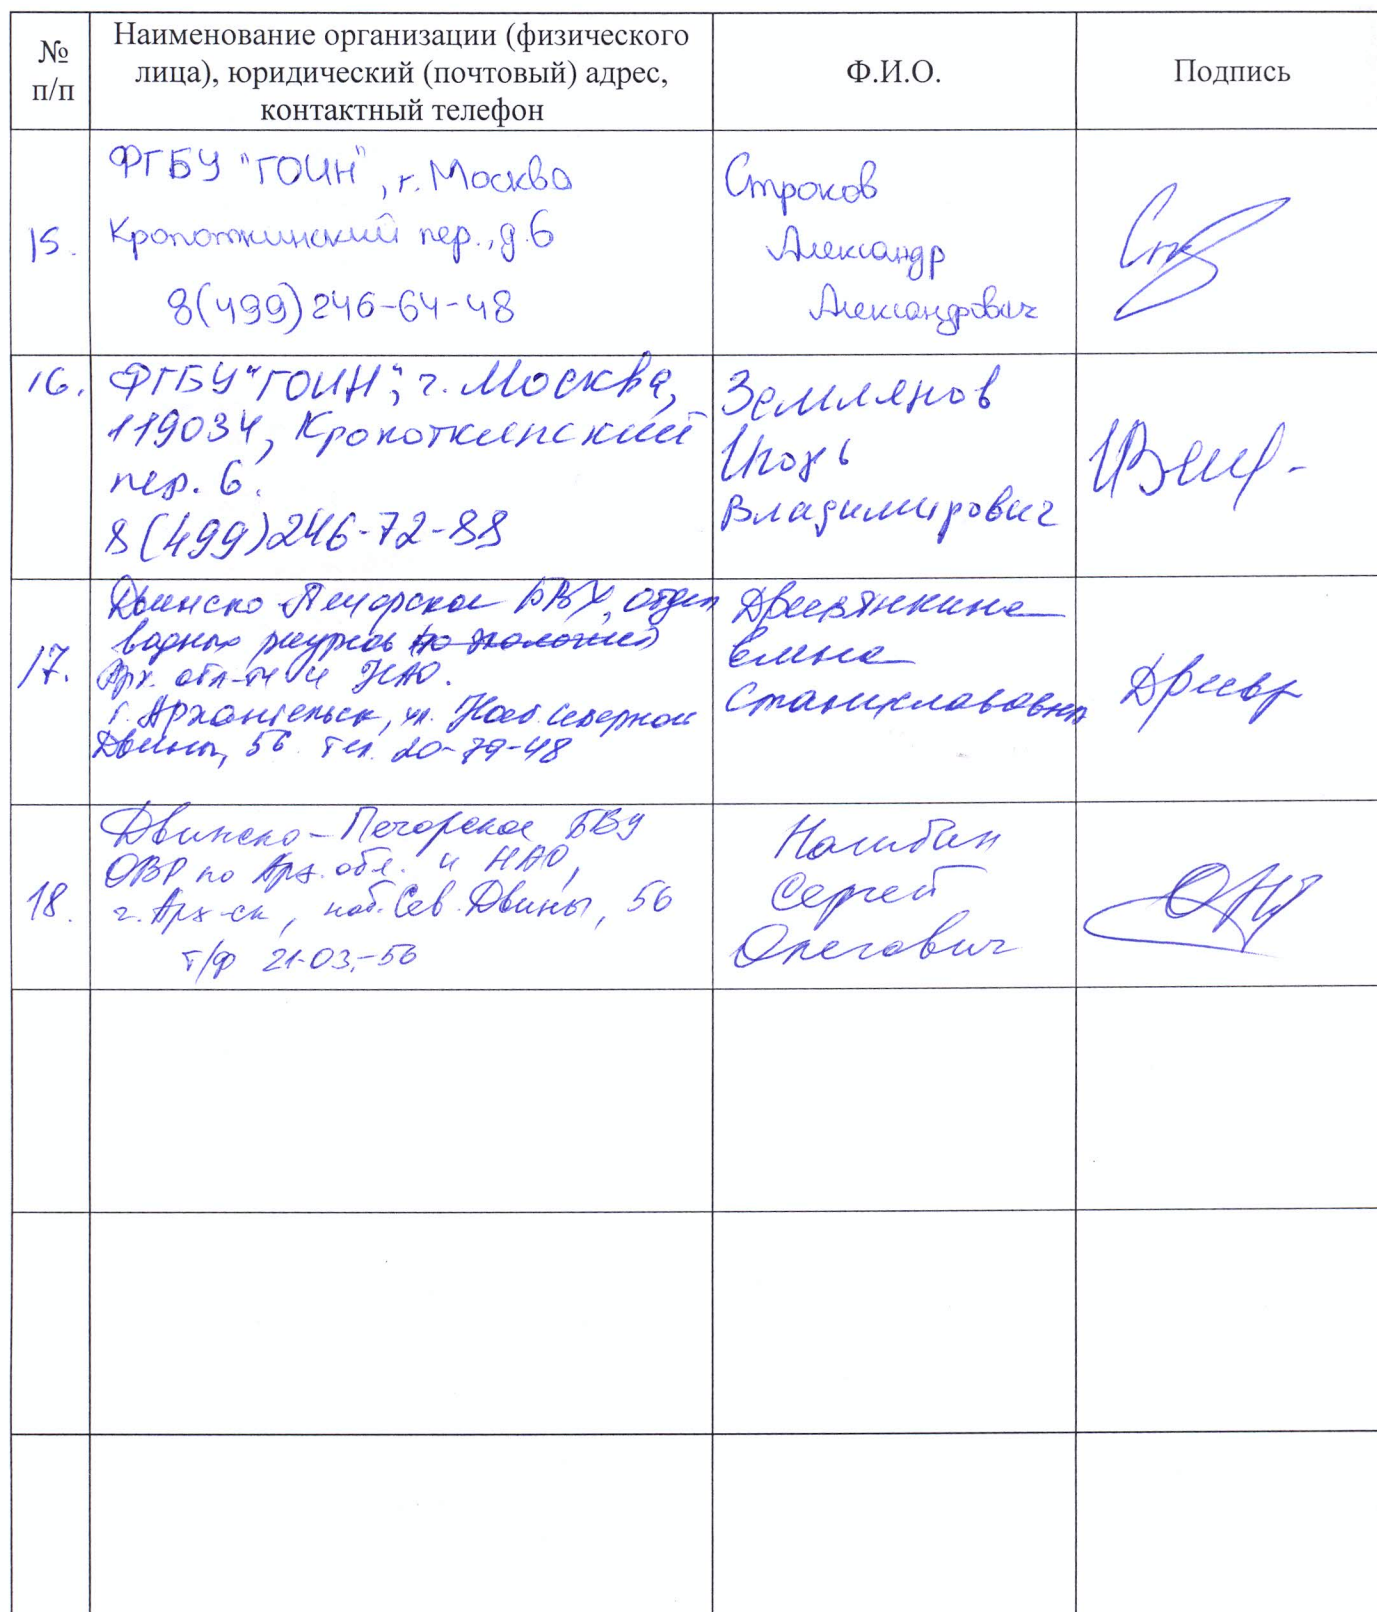 № п/п
Наименование организации (физического
лица), юридический (почтовый) адрес,
контактный телефон
Ф.И.О.
Подпись
15.
ФГБУ "ГОИН", г. Москва
Кропоткинский пер., д.6
8(499)246-64-48
Строков
Александр
Александрович
16.
ФГБУ "ГОИН", г. Москва,
119034, Кропоткинский
пер. 6.
8(499)246-72-88
Землянов
Игорь
Владимирович
17.
Двинско-Печорское БВУ, отдел
водных ресурсов
Арх. обл-ти и НАО.
г. Архангельск, ул. Наб. Северной
Двины, 56 тел. 20-79-48
Елена
Станиславовна
18.
Двинско-Печорское БВУ
ОВР по Арх. обл. и НАО,
г. Арх-ск, наб. Сев. Двины, 56
т/ф 21-03-56
Сергей
Олегович